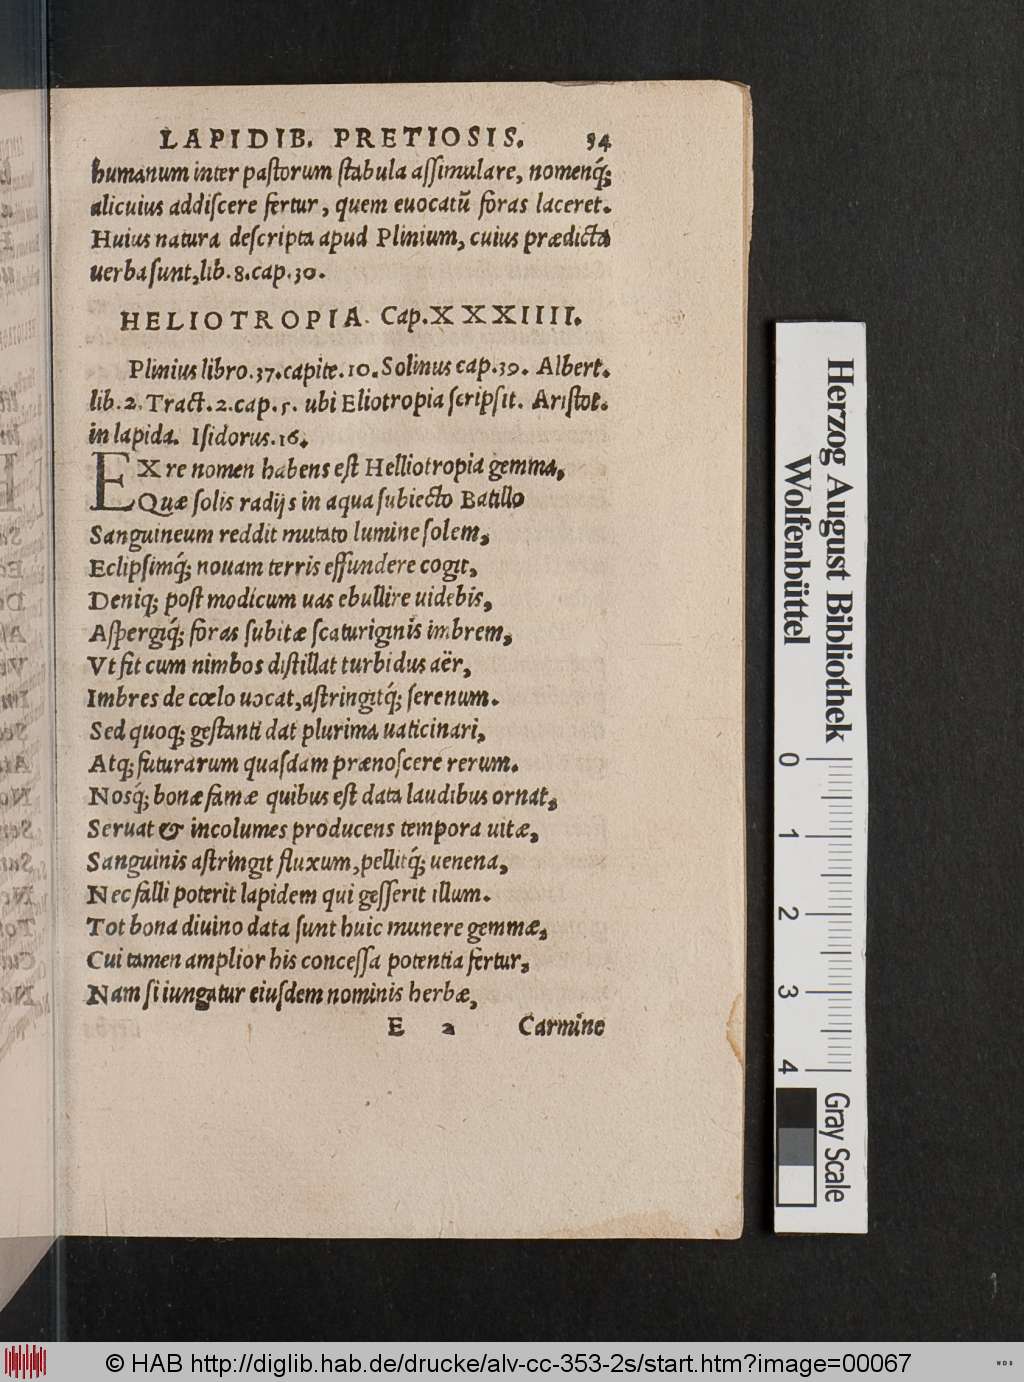 LAPIDIB. PRETIOSIS. 34
humanum inter paſtorum ſtabula aſſimulare, nomenq́;
alicuius addiſcere fertur, quem euocatū foras laceret.
Huius natura deſcripta apud Plinium, cuius prædicta
uerba ſunt, lib. 8. cap. 30.
HELIOTROPIA. Cap. XXXIIII.
Plinius libro. 37. capite. 10. Solinus cap. 39. Albert.
lib. 2. Tract. 2. cap. 5. ubi Eliotropia ſcripſit. Ariſtot.
in lapida. Iſidorus. 16.
EX re nomen habens eſt Helliotropia gemma,
Quæ ſolis radijs in aqua ſubiecto Batillo
Sanguineum reddit mutato lumine ſolem,
Eclipſimq́; nouam terris effundere cogit,
Deniq; poſt modicum uas ebullire uidebis,
Aſpergiq́; foras ſubitæ ſcaturiginis imbrem,
Vt fit cum nimbos diſtillat turbidus aër,
Imbres de cœlo uocat, aſtringitq́; ſerenum.
Sed quoq; geſtanti dat plurima uaticinari,
Atq; futurarum quaſdam prænoſcere rerum.
Nosq́; bonæ famæ quibus eſt data laudibus ornat,
Seruat & incolumes producens tempora uitæ,
Sanguinis aſtringit fluxum, pellitq́; uenena,
Nec falli poterit lapidem qui geſſerit illum.
Tot bona diuino data ſunt huic munere gemmæ,
Cui tamen amplior his conceſſa potentia fertur,
Nam ſi iungatur eiuſdem nominis herbæ,
E 2 Carmine
Herzog August Bibliothek
Wolfenbüttel
0 1 2 3 4
Gray Scale
© HAB http://diglib.hab.de/drucke/alv-cc-353-2s/start.htm?image=00067